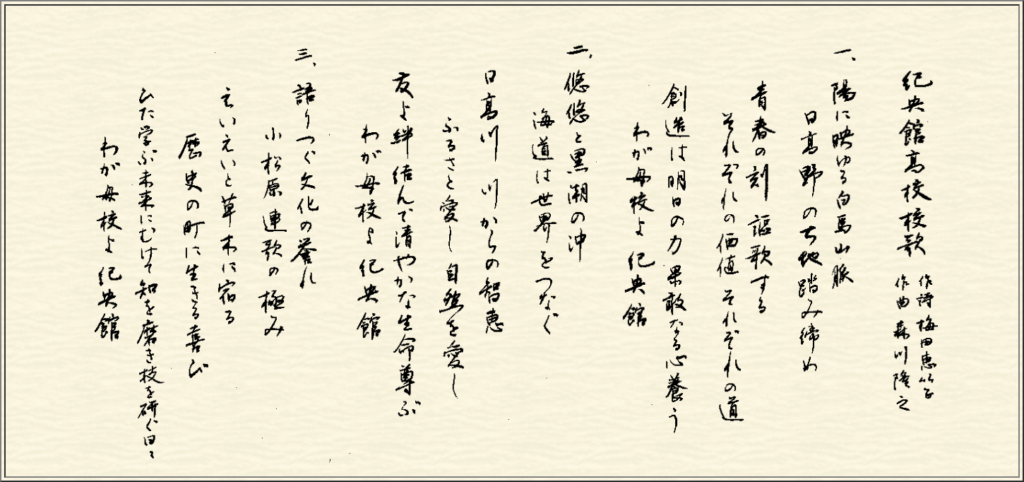 紀央館高校校歌
作詩 梅田恵以子
作曲 森川隆之
一、陽に映ゆる白馬山脈
日高野の大地踏み締め
青春の刻 謳歌する
それぞれの価値 それぞれの道
創造は明日の力 果敢なる心養う
わが母校よ 紀央館
二、悠悠と黒潮の沖
海道は世界をつなぐ
日高川 川からの智恵
ふるさと愛し 自然を愛し
友よ絆 結んで清やかな生命尊ぶ
わが母校よ 紀央館
三、語りつぐ文化の誉れ
小松原連歌の極み
えいえいと草木に宿る
歴史の町に生きる喜び
ひた学ぶ未来にむけて知を磨き技を研ぐ日々
わが母校よ 紀央館